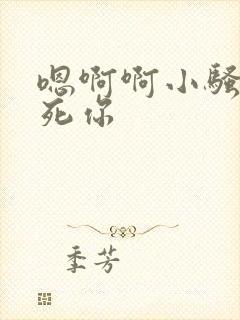 嗯啊啊小骚
死你
季芳